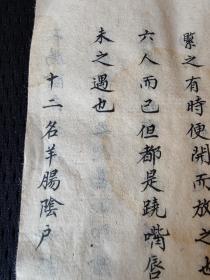 緊之有時便開而放之也
六人而已但都是蹺嘴唇
未之遇也
十二名羊腸陰户